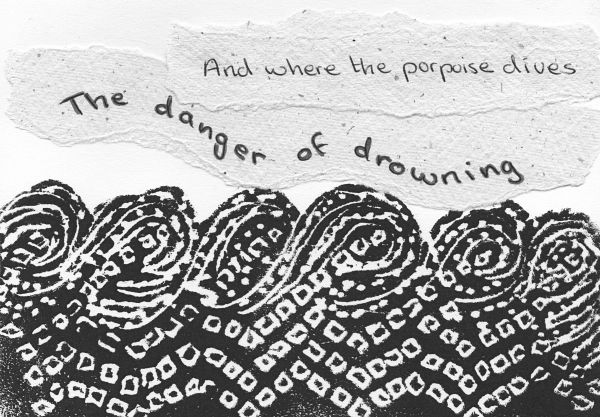 And where the porpoise dives
The danger of drowning